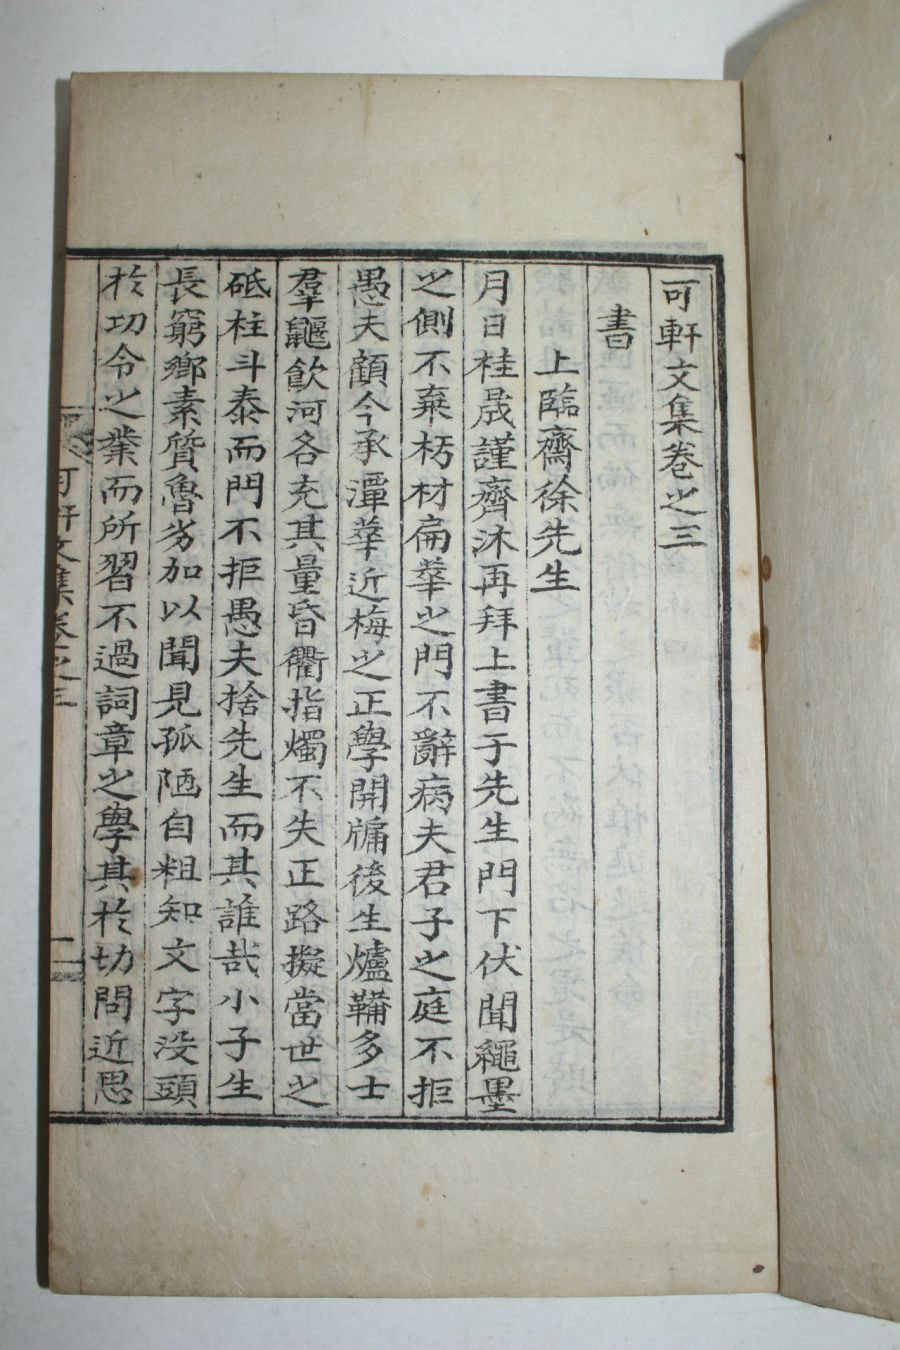 可軒文集卷之三
書
上臨齋徐先生
月日桂晟謹齊沐再拜上書于先生門下伏聞繩墨
之側不棄朽材扁鵲之門不辭病夫君子之庭不拒
愚夫顧今承潭華近梅之正學開牖後生爐鞴多士
羣鼴飮河各充其量昏衢指燭不失正路擬當世之
砥柱斗泰而門不拒愚夫捨先生而其誰哉小子生
長窮鄉素質魯劣加以聞見孤陋自粗知文字没頭
於功令之業而所習不過詞章之學其於切問近思
可軒文集卷之三
一